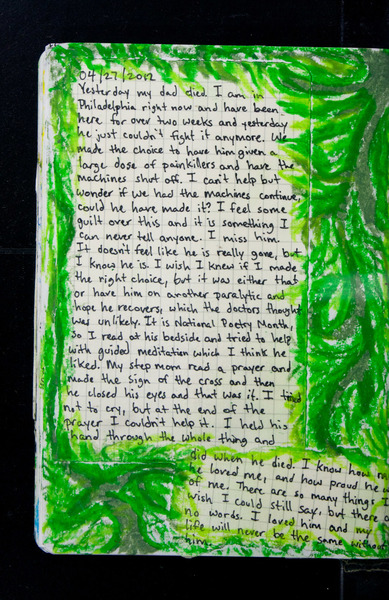 04/27/2012
Yesterday my dad died. I am in
Philadelphia right now and have been
here for over two weeks and yesterday
he just couldn't fight it anymore. We
made the choice to have him given a
large dose of painkillers and have the
machines shut off. I can't help but
wonder if we had the machines continue,
could he have made it? I feel some
guilt over this and it is something I
can never tell anyone. I miss him.
It doesn't feel like he is really gone, but
I know he is. I wish I knew if I made
the right choice, but it was either that
or have him on another paralytic and
hope he recovers, which the doctors thought
was unlikely. It is National Poetry Month,
so I read at his bedside and tried to help
with guided meditation which I think he
liked. My step mom read a prayer and
made the sign of the cross and then
he closed his eyes and that was it. I tried
not to cry, but at the end of the
prayer I couldn't help it. I held his
hand through the whole thing and
did when he died. I know how
he loved me, and how proud he
of me. There are so many things
wish I could still say, but there
no words. I loved him and my
life will never be the same without
him.